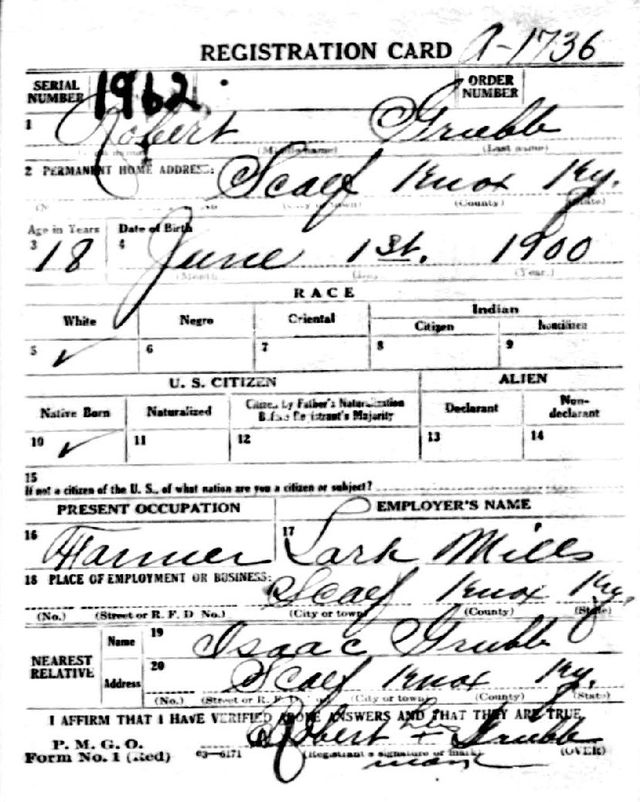 REGISTRATION CARD A-1736
SERIAL NUMBER 1962 ORDER NUMBER
1 Robert Grubb
(Middle name) (Last name)
2 PERMANENT HOME ADDRESS: Scalf Knox Ky.
(County) (State)
Age in Years Date of Birth
3 18 4 June 1st. 1900
(Month) (Day) (Year.)
RACE
White Negro Oriental Indian
Citizen Noncitizen
5 ✓ 6 7 8 9
U. S. CITIZEN ALIEN
Native Born Naturalized Citizen by Father's Naturalization Before Registrant's Majority Declarant Non-declarant
10 ✓ 11 12 13 14
15
If not a citizen of the U. S., of what nation are you a citizen or subject?
PRESENT OCCUPATION EMPLOYER'S NAME
16 Farmer 17 Lark Mills
18 PLACE OF EMPLOYMENT OR BUSINESS: Scalf Knox Ky.
(No.) (Street or R. F. D. No.) (City or town) (County) (State)
NEAREST RELATIVE
Name 19 Isaac Grubb
Address 20 Scalf Knox Ky.
(No.) (Street or R. F. D. No.) (City or town) (County) (State)
I AFFIRM THAT I HAVE VERIFIED ABOVE ANSWERS AND THAT THEY ARE TRUE
P. M. G. O.
Form No. 1 (Red) 63-6171 Robert Grubb
(Registrant's signature or mark) (OVER)
mark